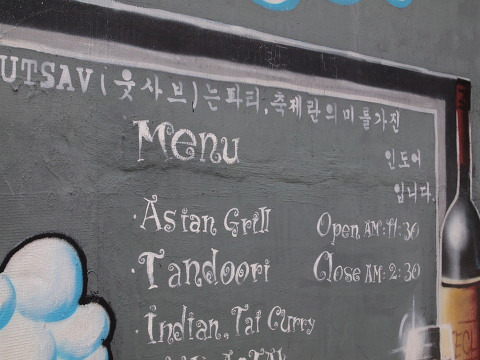 UTSAV(웃사브)는파티,축제란의미를가진
인도어
입니다.
Menu
·Asian Grill
Open AM:11:30
·Tandoori
Close AM:2:30
·Indian.Tai Curry